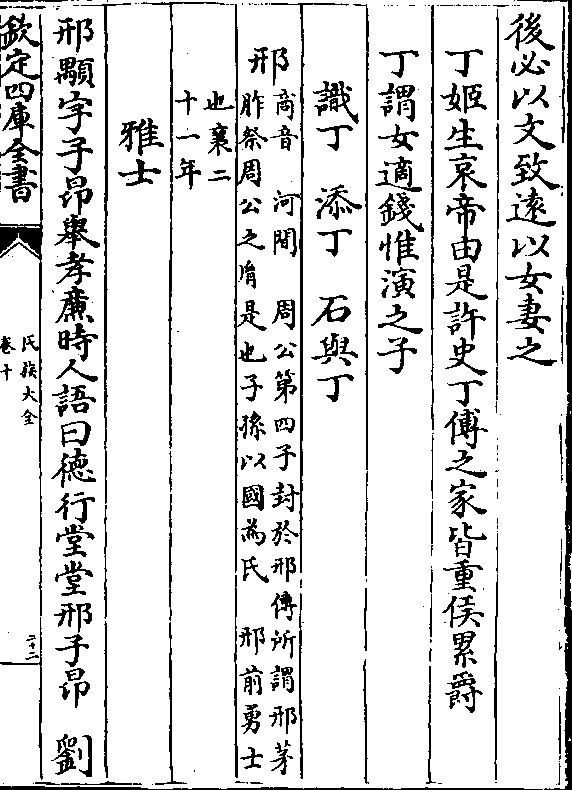 後必以文致遠以女妻之
丁姬生哀帝由是許史丁傅之家皆重侯累爵
丁謂女適錢惟演之子
識丁 添丁 石與丁
邢
商音 河間 周公第四子封於邢傳所謂邢茅
胙祭周公之胤是也子孫以國為氏 邢前勇士
也襄二
十一年
雅士
邢顒字子昂舉孝廉時人語曰徳行堂堂邢子昂 劉
欽定四庫全書
氏族大全
卷十
二十二